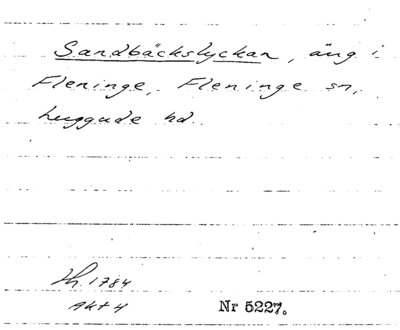 Sandbäckslyckan, äng i
Fleninge, Fleninge sn,
Luggude hd.
Lh. 1784
Akt 4
Nr 5227.